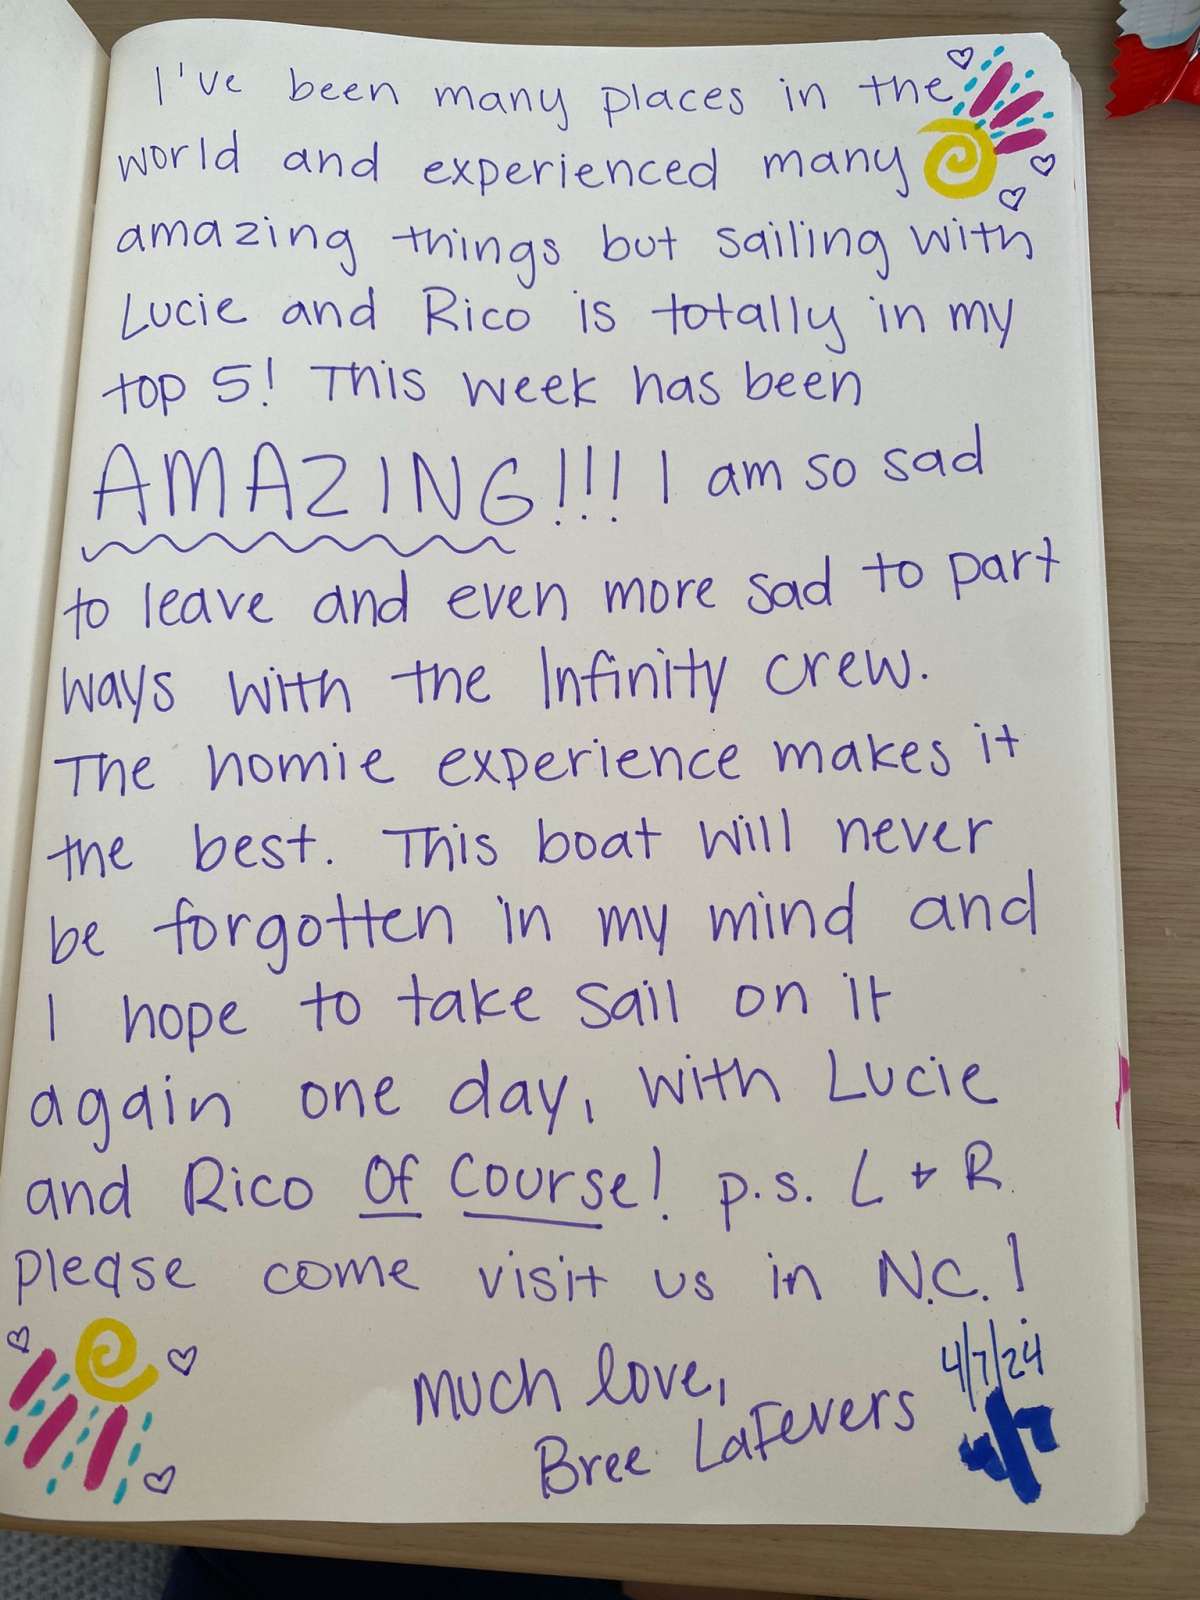 I've been many places in the
world and experienced many
amazing things but sailing with
Lucie and Rico is totally in my
top 5! This week has been
AMAZING!!! I am so sad
to leave and even more sad to part
ways with the Infinity crew.
The homie experience makes it
the best. This boat will never
be forgotten in my mind and
I hope to take sail on it
again one day, with Lucie
and Rico Of Course! p.s. L + R
please come visit us in N.C.!
Much love,
Bree LaFevers
4/7/24